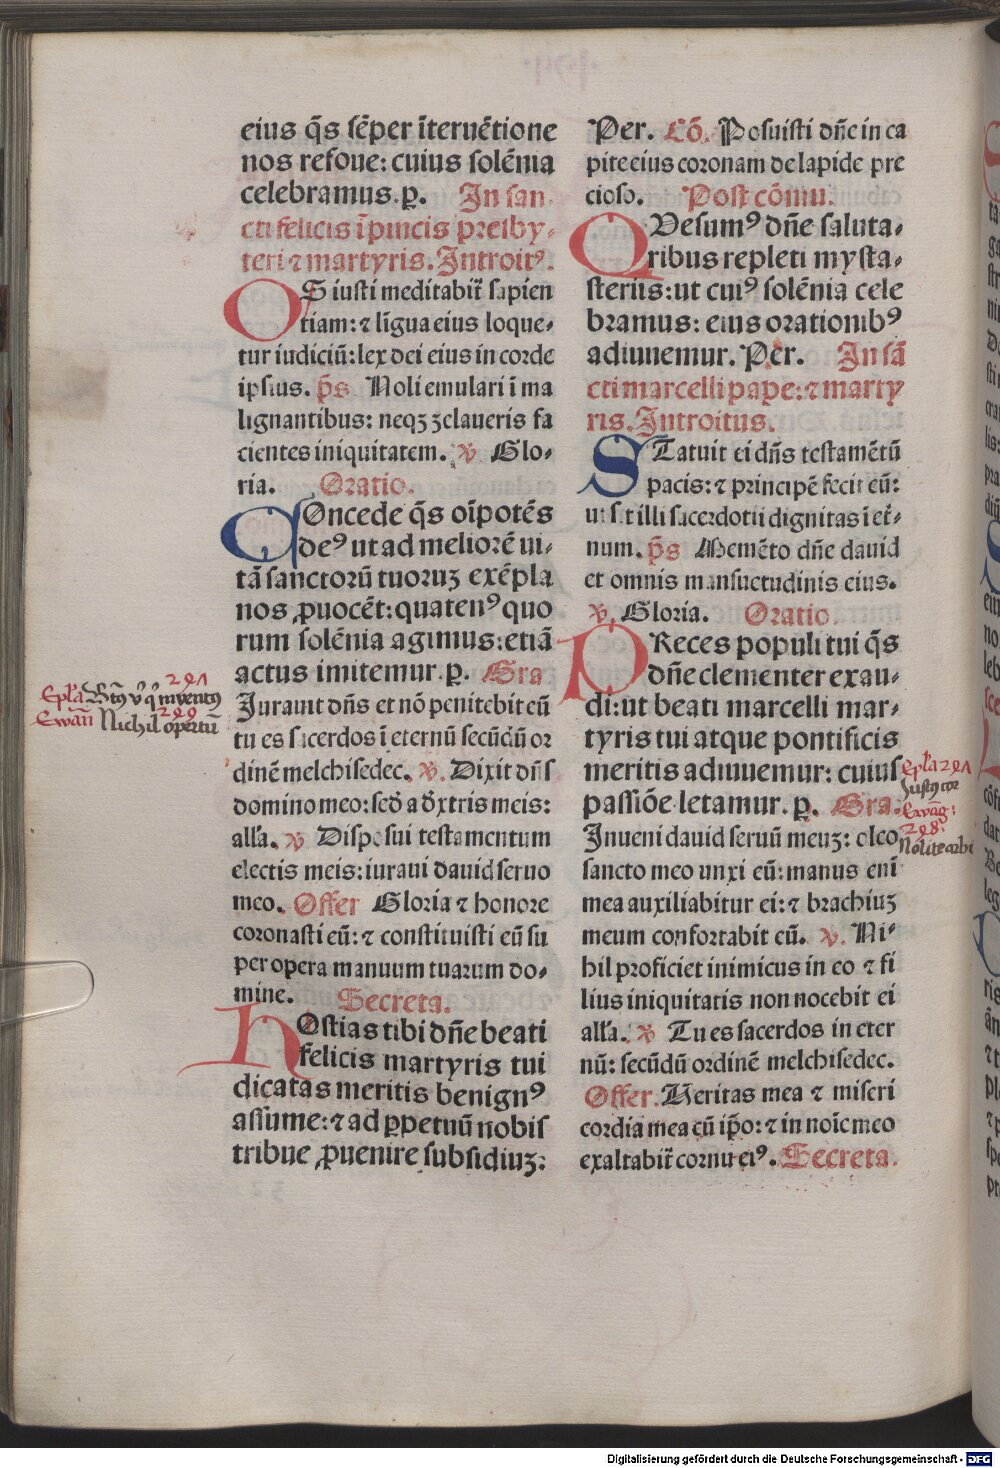 eius q̄s sēper īteruētione
nos refoue: cuius solēnia
celebramus. ꝑ. In san
cti felicis ī pincis presby⸗
teri ⁊ martyris. Introitꝰ.
OS iusti meditabit̄ sapien
tiam: ⁊ līgua eius loque⸗
tur iudiciū: lex dei eius in corde
ipsius. p̄s Noli emulari ī ma
lignantibus: neqꝫ ꝫelaueris fa
cientes iniquitatem. ℣ Glo⸗
ria. Oratio.
COncede q̄s oīpotēs
deꝰ ut ad meliorē ui⸗
tā sanctorū tuoruꝫ exēpla
nos ꝓuocēt: quatenꝰ quo
rum solēnia agimus: etiā
actus imitemur. ꝑ. Gra
Jurauit dn̄s et nō penitebit eū
tu es sacerdos ī eternū secūdū or
dinē melchisedec. ℣. Dixit dn̄s
domino meo: sedꝰ a dextris meis:
alla. ℣ Disposui testamentum
electis meis: iuraui dauid seruo
meo. Offer Gloria ⁊ honore
coronasti eū: ⁊ constituisti eū su
per opera manuum tuarum do⸗
mine. Secreta.
HOstias tibi dn̄e beati
felicis martyris tui
dicatas meritis benignꝰ
assume: ⁊ ad ꝑpetuū nobis
tribue ꝓuenire subsidiuꝫ:
Epl̄a 291
Bt̄ꝰ v̄ q̄ inventꝰ
Ewāū 299
Nichil opertū
Per. Cō. Posuisti dn̄e in ca
pite eius coronam de lapide pre
cioso. Post cōmu.
QVesumꝰ dn̄e saluta⸗
ribus repleti mysta⸗
steriis: ut cuiꝰ solēnia cele
bramus: eius orationibꝰ
adiuuemur. Per. In sā
cti marcelli pape: ⁊ marty
ris. Introitus.
STatuit ei dn̄s testamētū
pacis: ⁊ principē fecit eū:
ut sit illi sacerdotii dignitas ī et̄⸗
num. p̄s Memēto dn̄e dauid
et omnis mansuetudinis eius.
℣. Gloria. Oratio.
PReces populi tui q̄s
dn̄e clementer exau⸗
di: ut beati marcelli mar⸗
tyris tui atque pontificis
meritis adiuuemur: cuius
passiōe letamur. ꝑ. Gra.
Jnueni dauid seruū meuꝫ: oleo
sancto meo unxi eū: manus enī
mea auxiliabitur ei: ⁊ brachiuꝫ
meum confortabit eū. ℣. Ni⸗
hil proficiet inimicus in eo ⁊ fi
lius iniquitatis non nocebit ei
alla. ℣ Tu es sacerdos in eter
nū: secūdū ordinē melchisedec.
Offer. Ueritas mea ⁊ miseri
cordia mea cū ip̄o: ⁊ in noīe meo
exaltabit̄ cornu eiꝰ. Secreta.
Epl̄a 291
Justꝰ cor
Ewāg:
298
Nolite arbi
Digitalisierung gefördert durch die Deutsche Forschungsgemeinschaft - DFG